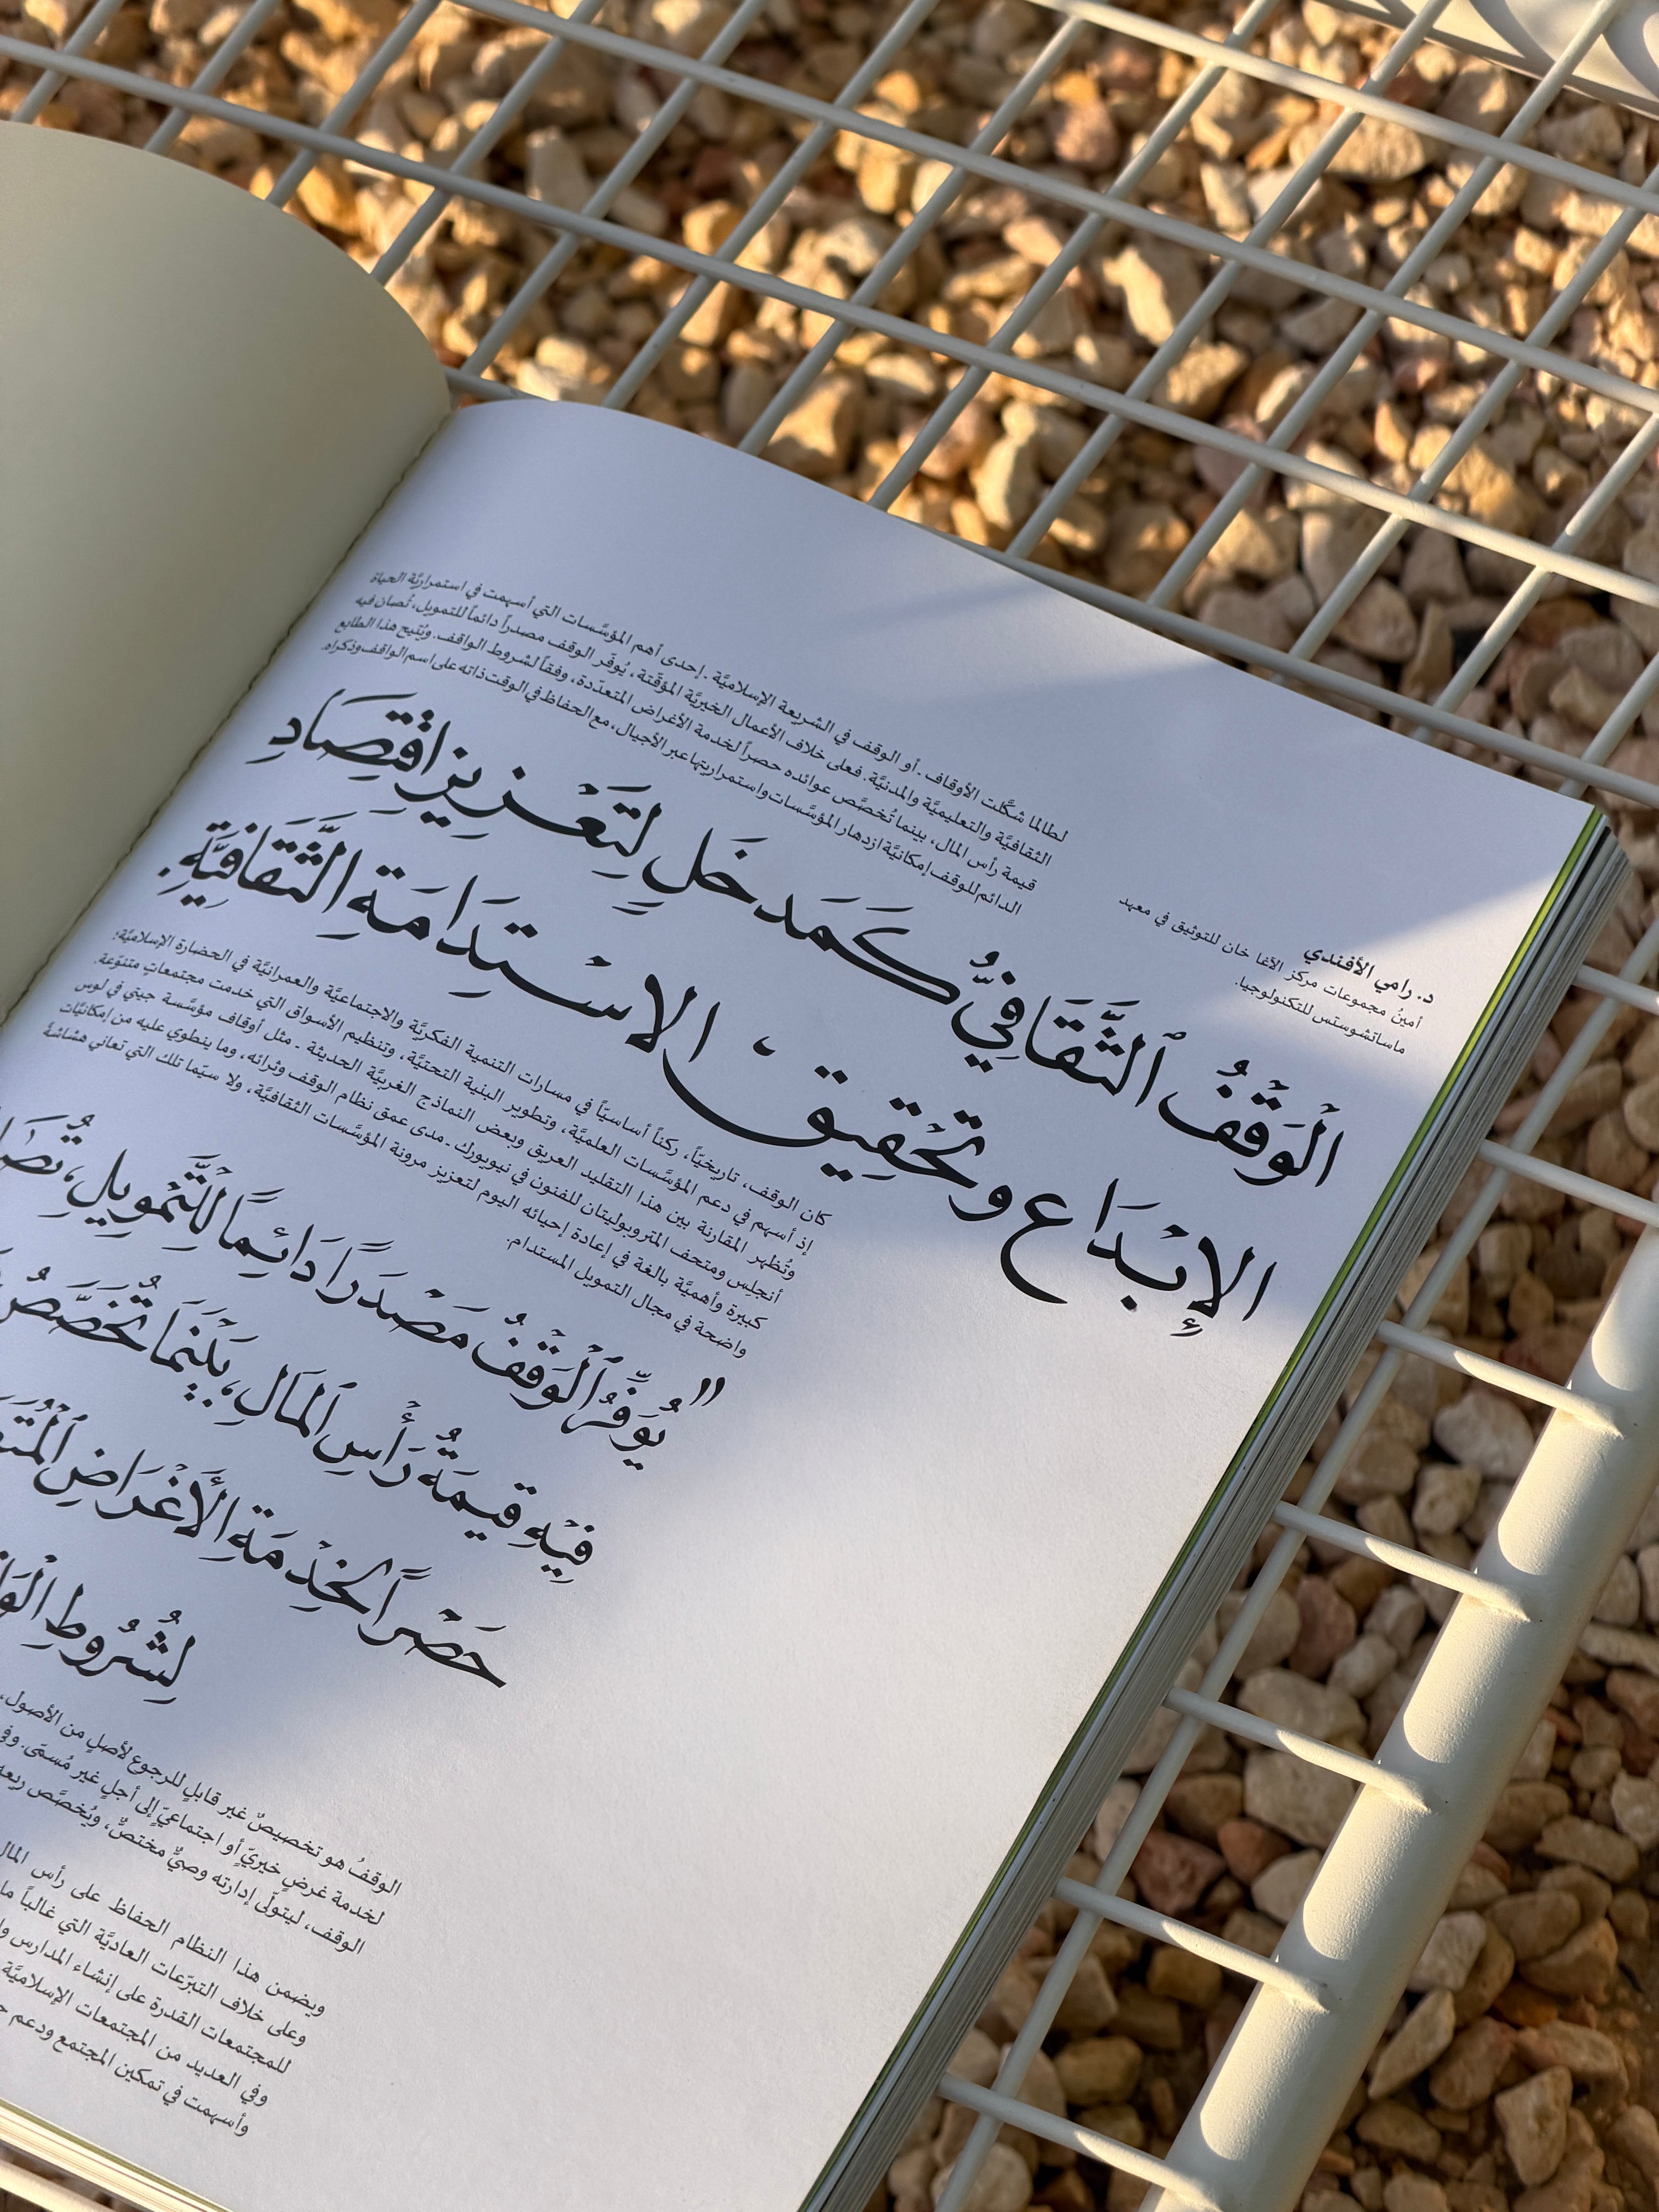 د. رامي الأفندي
أمينُ مجموعات مركز الآغا خان للتوثيق في معهد
ماساتشوستس للتكنولوجيا.
لطالما شكَّلت الأوقاف ـ أو الوقف في الشريعة الإسلاميَّة ـ إحدى أهم المؤسَّسات التي أسهمت في استمراريَّة الحياة
الثقافيَّة والتعليميَّة والمدنيَّة. فعلى خلاف الأعمال الخيريَّة المؤقَّتة، يُوفّر الوقف مصدراً دائماً للتمويل، تُصان فيه
قيمة رأس المال، بينما تُخصَّص عوائده حصراً لخدمة الأغراض المتعدّدة، وفقاً لشروط الواقف. ويُتيح هذا الطابع
الدائم للوقف إمكانيَّة ازدهار المؤسَّسات واستمراريتها عبر الأجيال، مع الحفاظ في الوقت ذاته على اسم الواقف وذكراه.
الْوَقْفُ ٱلثَّقَافِيُّ كَمَدخَلٍ لِتَعْزِيزِ اقْتِصَادِ
الإِبْدَاعِ وتَحْقِيقِ الاسْتِدَامَةِ الثَّقَافيَّةِ.
كان الوقف، تاريخيّاً، ركناً أساسيّاً في مسارات التنمية الفكريَّة والاجتماعيَّة والعمرانيَّة في الحضارة الإسلاميَّة؛
إذ أسهم في دعم المؤسَّسات العلميَّة، وتطوير البنية التحتيَّة، وتنظيم الأسواق التي خدمت مجتمعاتٍ متنوّعة.
وتُظهر المقارنة بين هذا التقليد العريق وبعض النماذج الغربيَّة الحديثة ـ مثل أوقاف مؤسَّسة جيتي في لوس
أنجلِس ومتحف المتروبوليتان للفنون في نيويورك ـ مدى عمق نظام الوقف وثرائه، وما ينطوي عليه من إمكانيَّات
كبيرة وأهميَّة بالغة في إعادة إحيائه اليوم لتعزيز مرونة المؤسَّسات الثقافيَّة، ولا سيّما تلك التي تعاني هشاشةً
واضحة في مجال التمويل المستدام.
"يُوَفِّرُ ٱلْوَقْفُ مَصْدَراً دَائِماً لِلتَّمْوِيلِ،
فِيْهِ قيمَةُ رَأْسِ ٱلمَالِ، بَيْنَمَا تُخَصَّصُ
حَصْراً لِخِدْمَةِ الأَغْرَاضِ
لِشُرُوطِ
الوقفُ هو تخصيصٌ غير قابلٍ للرجوع لأصلٍ من الأصول،
لخدمة غرضٍ خيريّ أو اجتماعيّ إلى أجلٍ غير مُسمّى. وفي
الوقف، ليتولّى إدارته وصيٌّ مختصٌّ، ويُخصَّص ريعه
ويضمن هذا النظام الحفاظ على رأس المال
وعلى خلاف التبرّعات العاديَّة التي غالباً ما
للمجتمعات القدرة على إنشاء المدارس
وفي العديد من المجتمعات الإسلاميَّة
وأسهمت في تمكين المجتمع ودعم